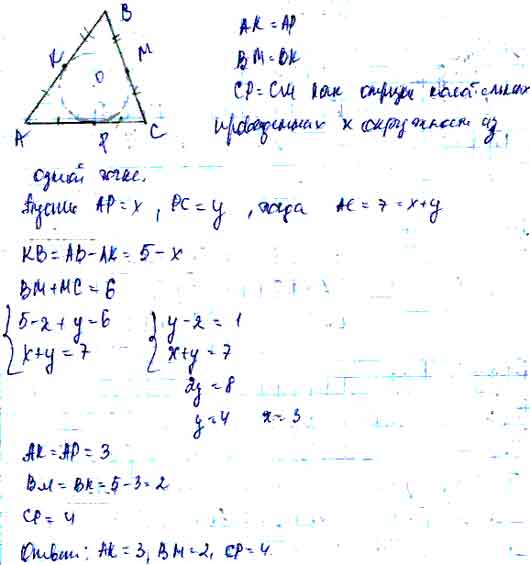 B
K
M
O
A
P
C
AK = AP
BM = BK
CP = CM как отрезки касательных
проведенных к окружности из
одной точке.
Пусть AP = x, PC = y, тогда AC = 7 = x+y
KB = AB - AK = 5 - x
BM + MC = 6
{ 5 - x + y = 6
{ x + y = 7
{ y - x = 1
{ x + y = 7
2y = 8
y = 4 x = 3
AK = AP = 3
BM = BK = 5-3 = 2
CP = 4
Ответ: AK = 3, BM = 2, CP = 4.